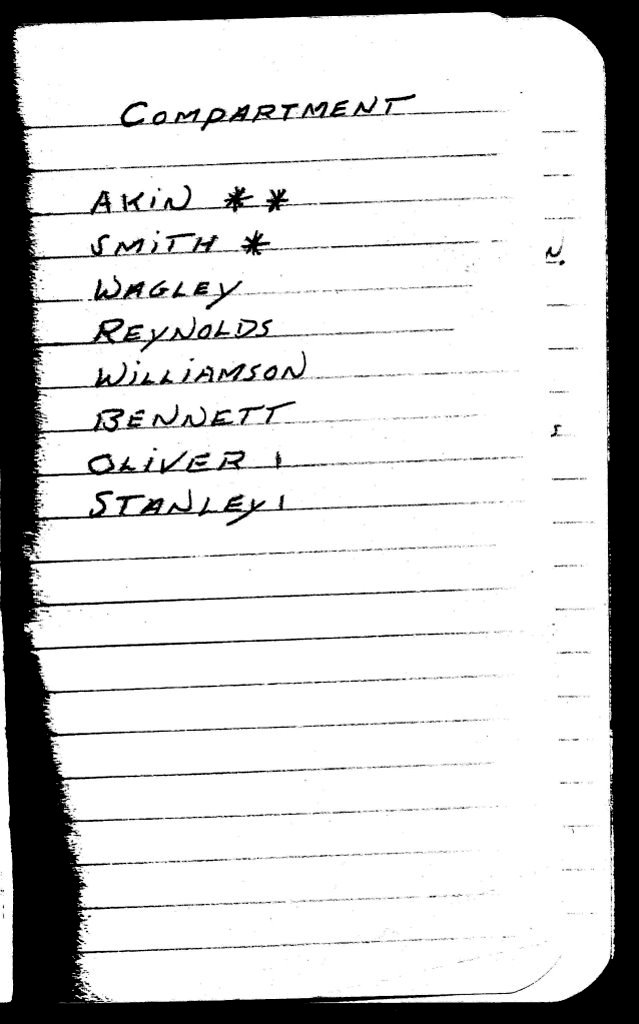 COMPARTMENT
AKiN * *
SMiTH *
WAGLEY
REYNOLDS
WiLLiAMSON
BENNETT
OLiVER 1
STANLEY 1
N.